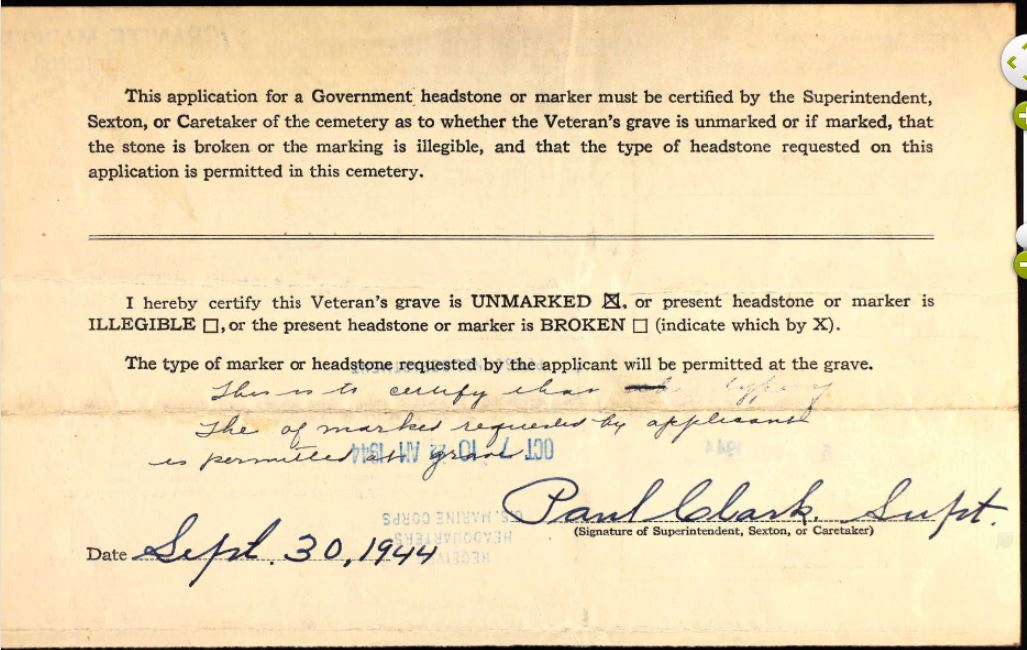 This application for a Government headstone or marker must be certified by the Superintendent,
Sexton, or Caretaker of the cemetery as to whether the Veteran's grave is unmarked or if marked, that
the stone is broken or the marking is illegible, and that the type of headstone requested on this
application is permitted in this cemetery.
I hereby certify this Veteran's grave is UNMARKED ☒, or present headstone or marker is
ILLEGIBLE ☐, or the present headstone or marker is BROKEN ☐ (indicate which by X).
The type of marker or headstone requested by the applicant will be permitted at the grave.
This is to certify that
The of marked requested by applicant
is permitted at grave.
OCT 7 10 AM 1944
Paul Clark. Supt.
(Signature of Superintendent, Sexton, or Caretaker)
Date Sept. 30, 1944
RECEIVED
HEADQUARTERS
U.S. MARINE CORPS